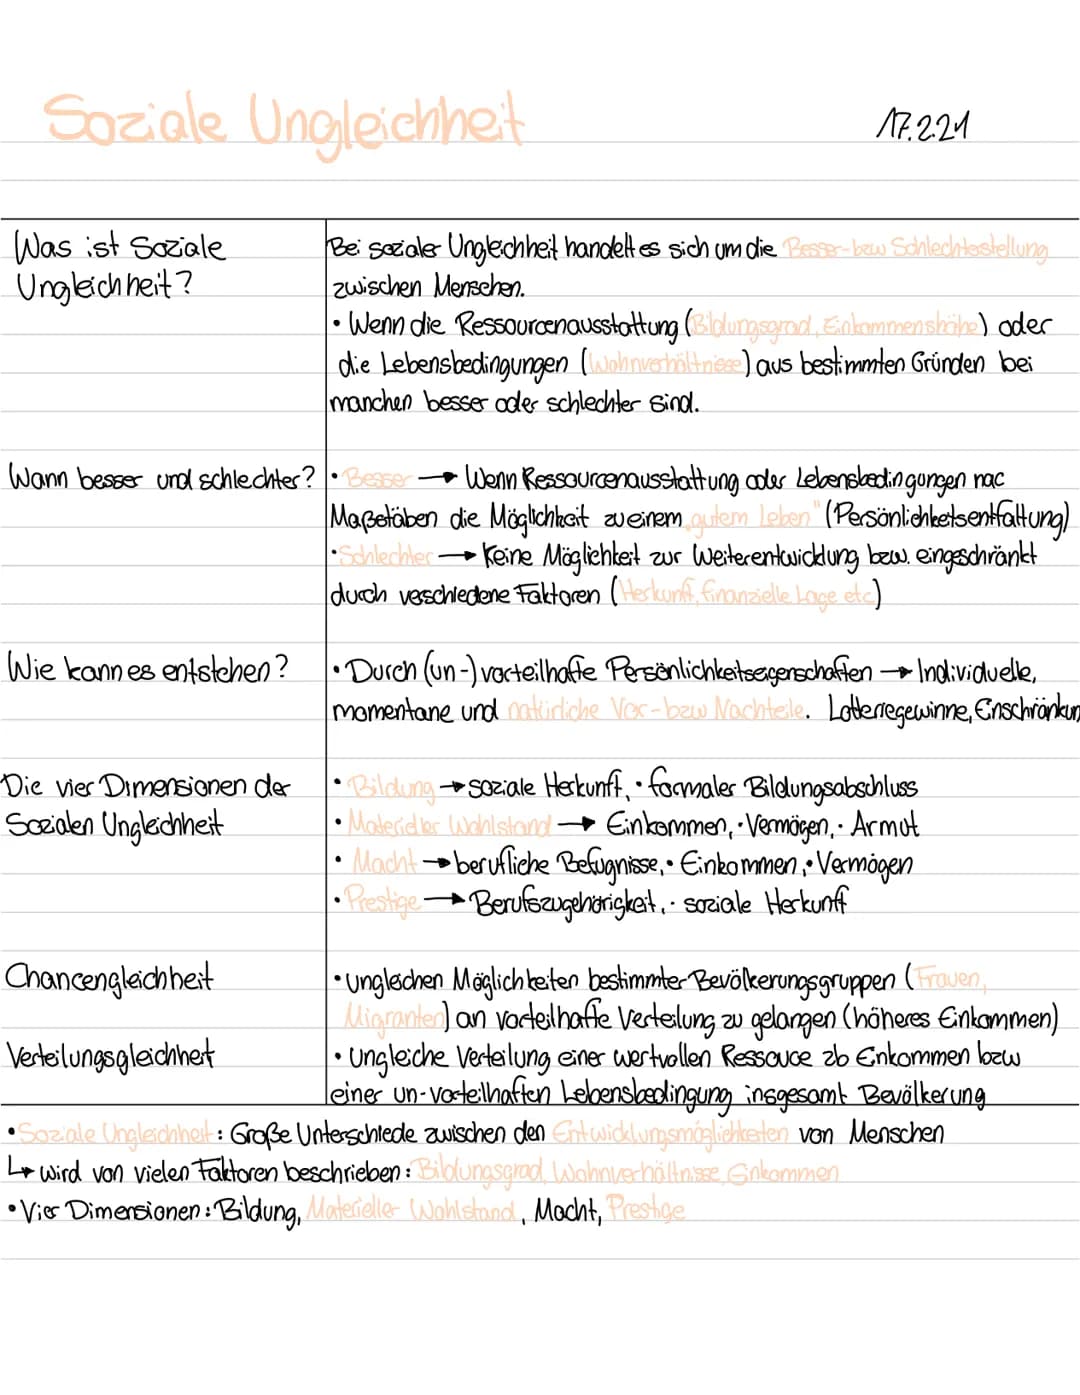 Soziale Ungleichheit
17.2.21
Was ist Soziale
Ungleichheit?
Bei sozialer Ungleichheit handelt es sich um die Besser-bzw Schlechterstellung
zwischen Menschen.
• Wenn die Ressourcenausstattung (Bildungsgrad, Einkommenshöhe) oder
die Lebensbedingungen (Wohnverhältnisse) aus bestimmten Gründen bei
manchen besser oder schlechter sind.
Wann besser und schlechter?
• Besser → Wenn Ressourcenausstattung oder Lebensbedingungen nac
Maßstäben die Möglichkeit zu einem „gutem Leben" (Persönlichkeitsentfaltung)
• Schlechter → Keine Möglichkeit zur Weiterentwicklung bzw. eingeschränkt
durch verschiedene Faktoren (Herkunft, finanzielle Lage etc)
Wie kann es entstehen?
• Durch (un-) vorteilhafte Persönlichkeitseigenschaften → Individuelle,
momentane und natürliche Vor-bzw Nachteile. Lotteriegewinne, Einschränkun
Die vier Dimensionen der
Sozialen Ungleichheit
• Bildung → soziale Herkunft, • formaler Bildungsabschluss
• Materieller Wohlstand → Einkommen, • Vermögen, • Armut
• Macht → berufliche Befugnisse, • Einkommen, • Vermögen
• Prestige → Berufszugehörigkeit, • soziale Herkunft
Chancengleichheit
• ungleichen Möglichkeiten bestimmter Bevölkerungsgruppen (Frauen,
Migranten) an vorteilhafte Verteilung zu gelangen (höheres Einkommen)
Verteilungsgleichheit
• Ungleiche Verteilung einer wertvollen Ressouce zb Einkommen bzw
einer un-vorteilhaften Lebensbedingung insgesamt Bevölkerung
• Soziale Ungleichheit: Große Unterschiede zwischen den Entwicklungsmöglichkeiten von Menschen
↳ wird von vielen Faktoren beschrieben: Bildungsgrad, Wohnverhältnisse, Einkommen
• Vier Dimensionen: Bildung, Materieller Wohlstand, Macht, Prestige